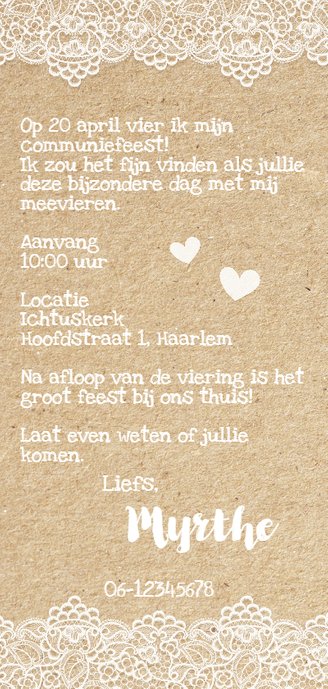 Op 20 april vier ik mijn
communiefeest!
Ik zou het fijn vinden als jullie
deze bijzondere dag met mij
meevieren.
Aanvang
10:00 uur
Locatie
Ichtuskerk
Hoofdstraat 1, Haarlem
Na afloop van de viering is het
groot feest bij ons thuis!
Laat even weten of jullie
komen.
Liefs,
Myrthe
06-12345678